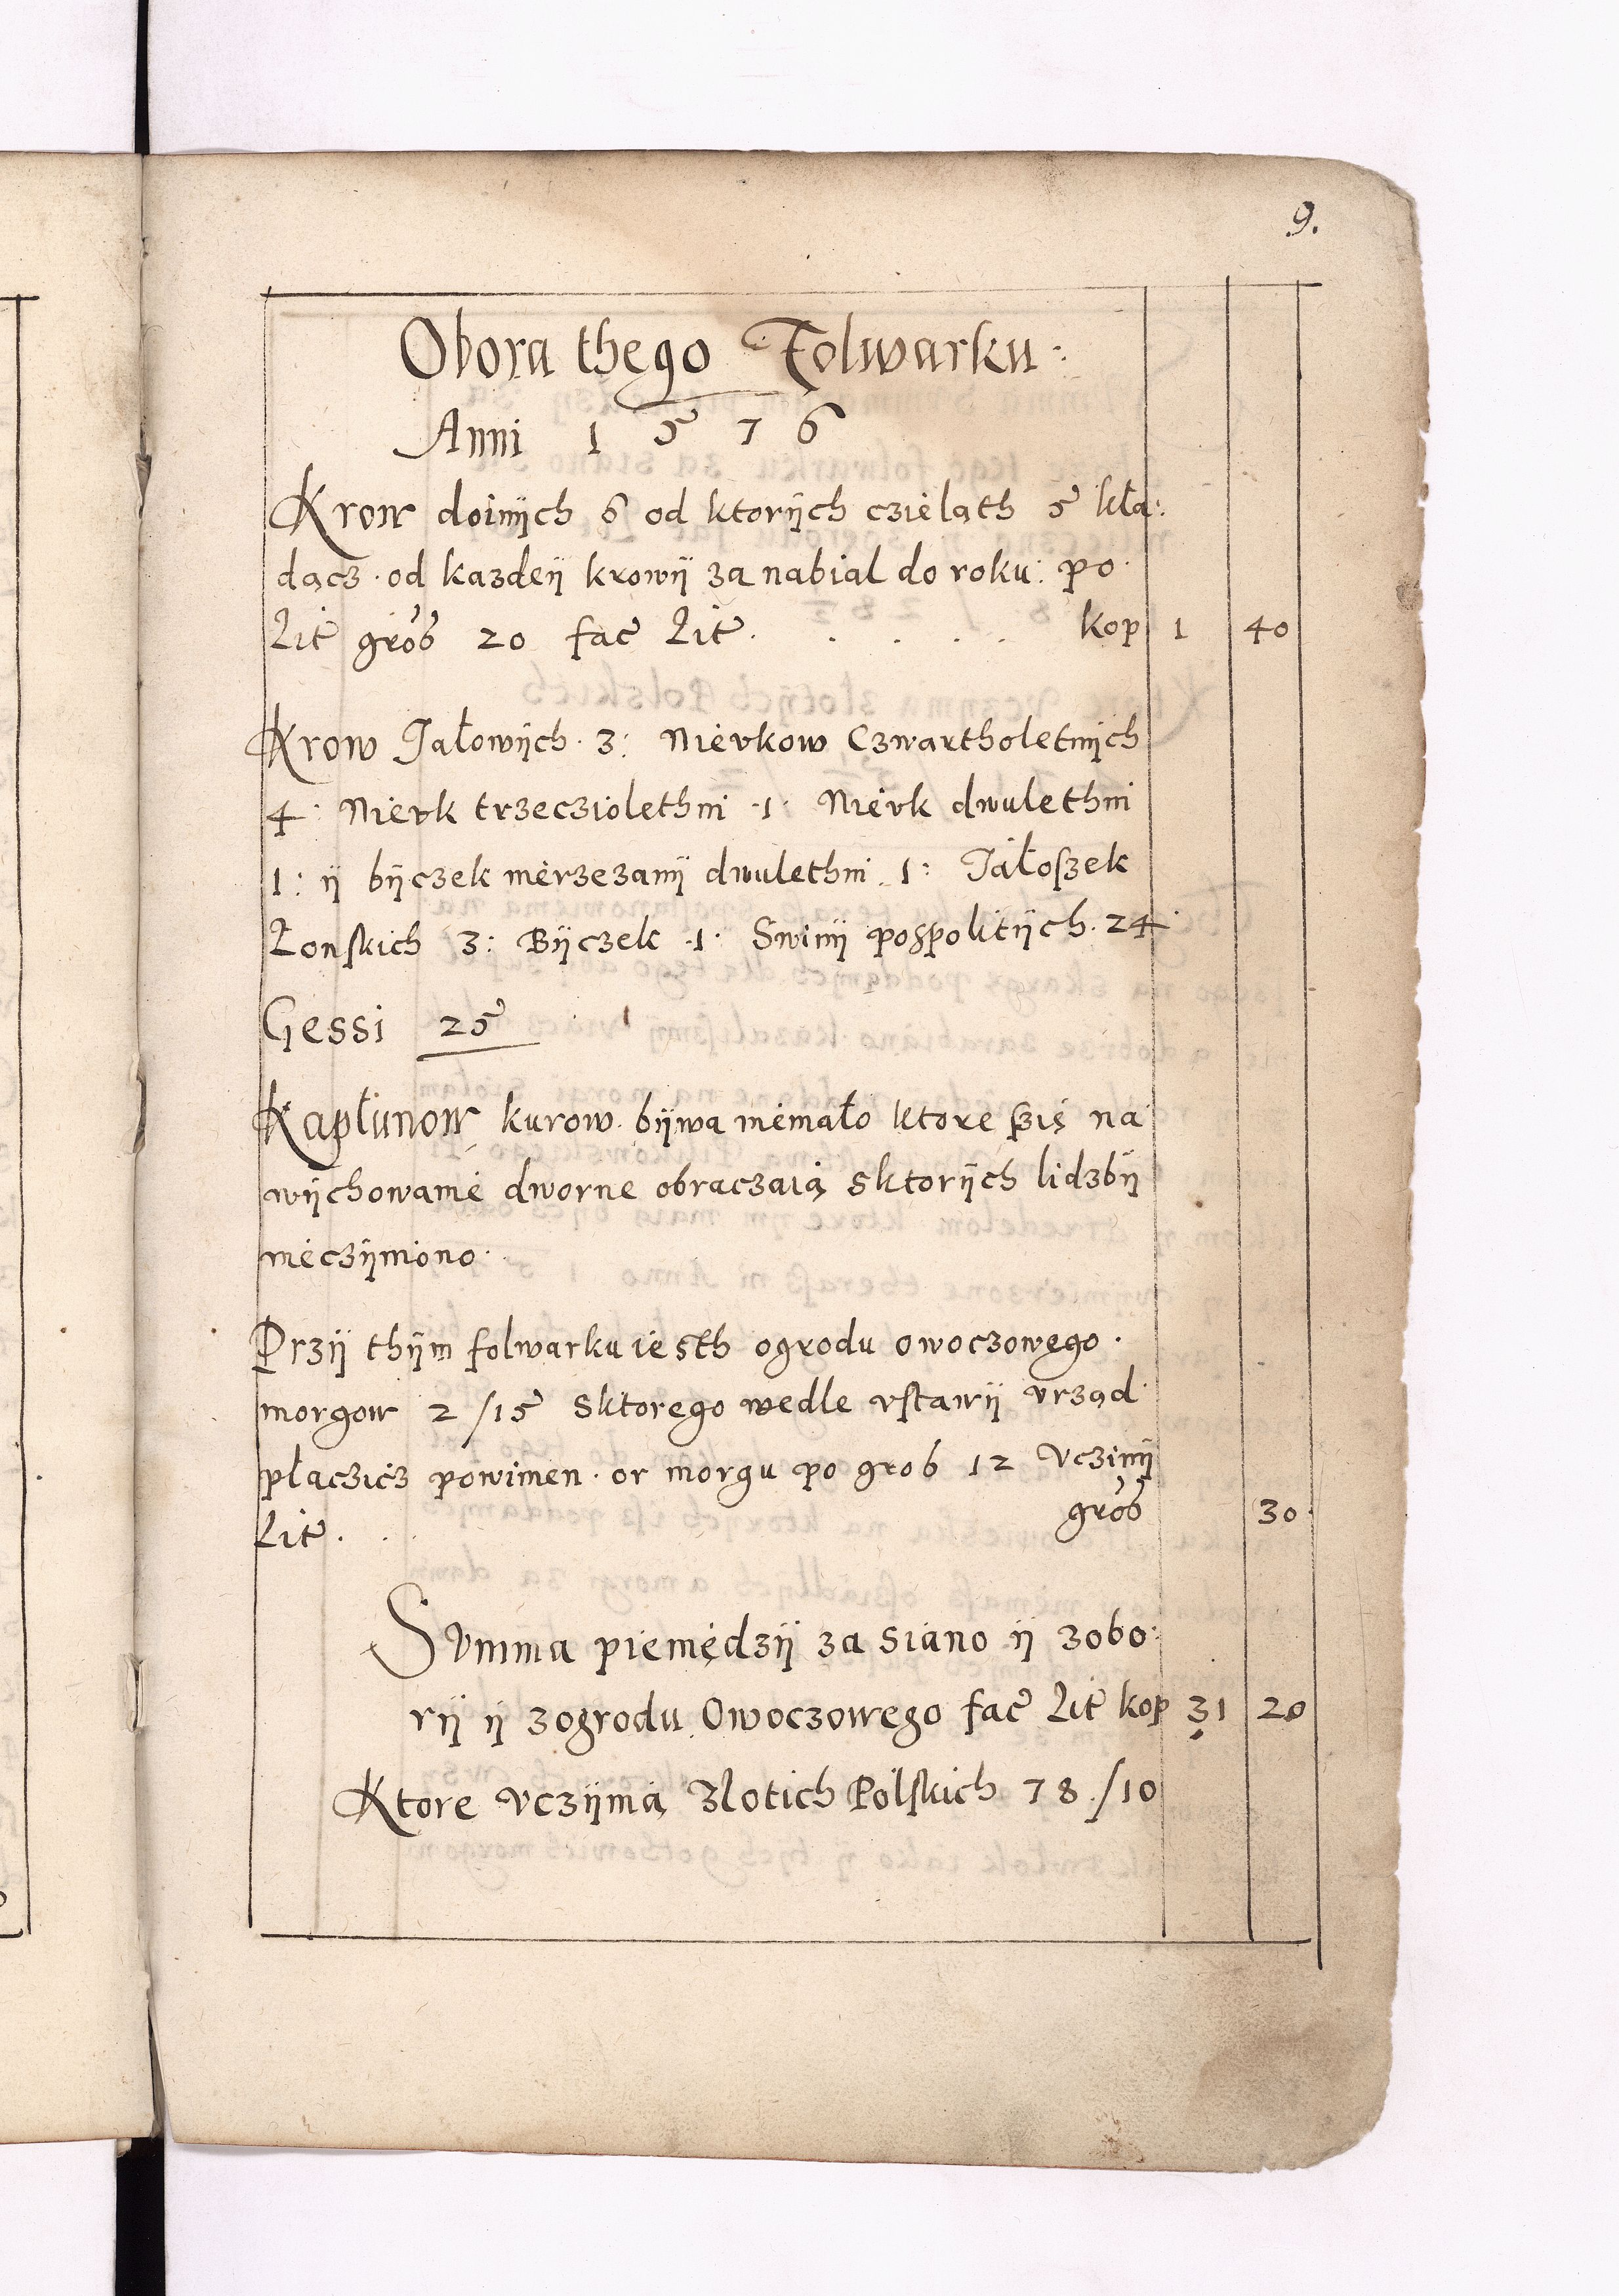 9.
Obora thego Folwarku:
Anni 1 5 7 6
Krow doinÿch 6 od ktorÿch cziеląth 5 kła:
dącz. od kazdeÿ krowÿ za nabial do roku: po.
Lit gros 20 fac Lit. . . . . kop 1 40
Krow Jałowÿch. 3: Nierkow Czwartholetnÿch
4: Nierk trzecziolethni .1. Nierk dwulethni
1: ÿ bÿczek nierzezanÿ dwulethni. 1: Jałoszek
Łonskich 3: Bÿczek .1. Swinÿ pospolitÿch. 24.
Gessi 25
Kapłunow kurow. bÿwa niemało ktore szię na
wÿchowanie dworne obraczaią sktorÿch lidzbÿ
nieczÿniono.
Przÿ thÿm folwarku iesth ogrodu owoczowego.
morgow 2/15 sktorego wedle vstawÿ vrząd
płaczicz powinien. or morgu po gros 12 Vczinÿ
Lit. . gros 30.
Summa pieniędzÿ za siano ÿ zobo:
rÿ ÿ zogrodu Owoczowego fac Lit kop 31 20
Ktore vczÿnią Zlotich Polskich 78./10